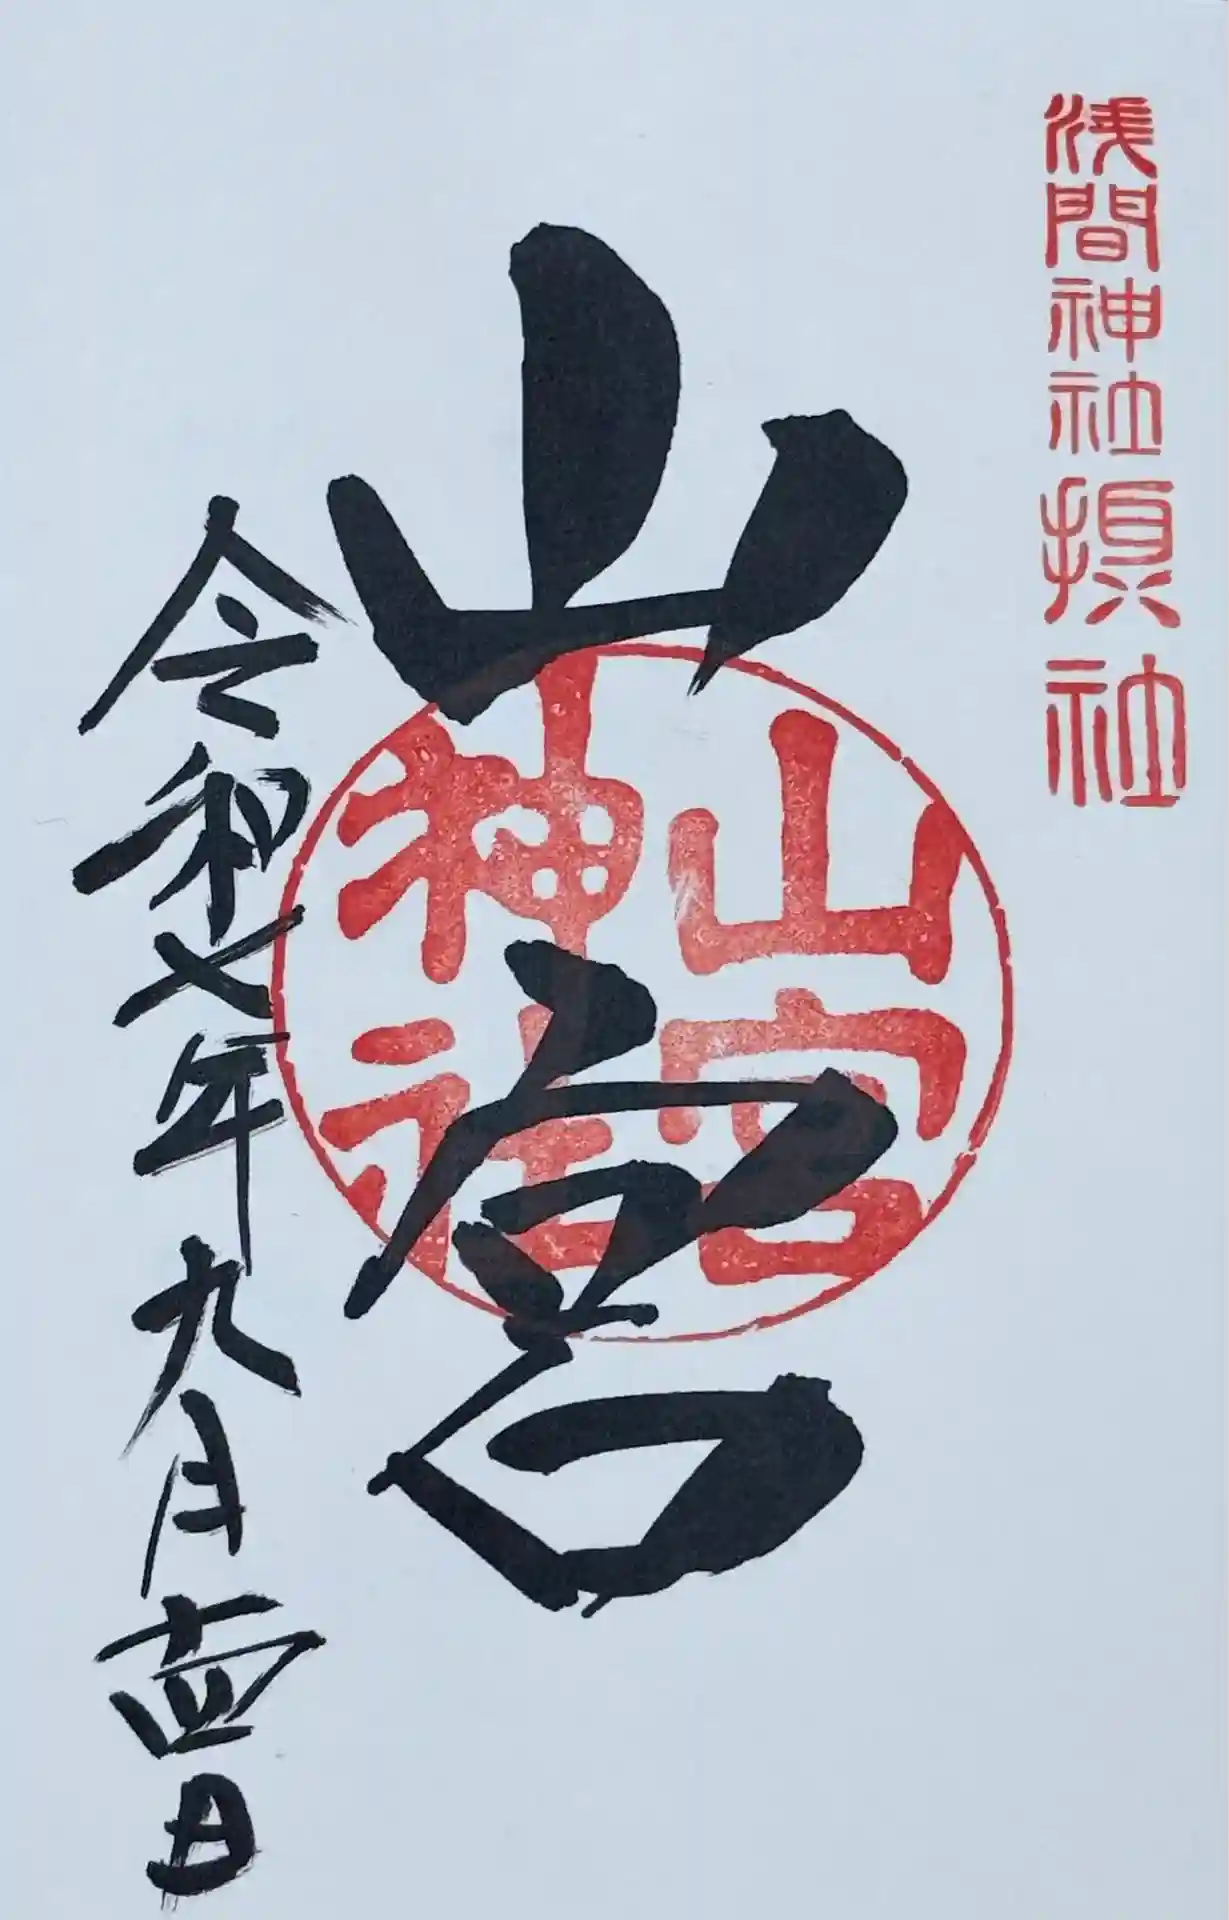 浅間神社摂社
山宮
山宮
神社
令和七年九月十四日